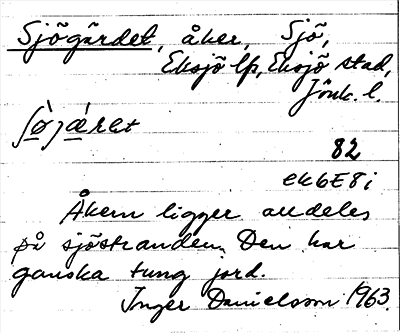 Sjögärdet, åker, Sjö,
Eksjö lfs, Eksjö stad,
Jönk. l.
82
ek6E8i
Åkern ligger alldeles
på sjöstranden. Den har
ganska tung jord.
Inger Danielsson 1963.